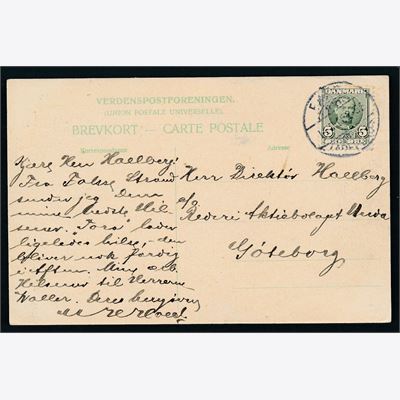 VERDENSPOSTFORENINGEN.
(UNION POSTALE UNIVERSELLE).
BREVKORT — CARTE POSTALE
Korrespondance
Adresse
DANMARK
5 5
Kære Herr Hallberg!
Fra Fakse Strand
sender jeg Dem
mine bedste Hil-
sener. "Tora" lader
ligeledes hilse, den
bliver nok færdig
i Aften. Min
Hilsener til Herrerne
Waller. Deres hengivne
Herr Direktör Hallberg
Rederi Aktiebolaget
Göteborg